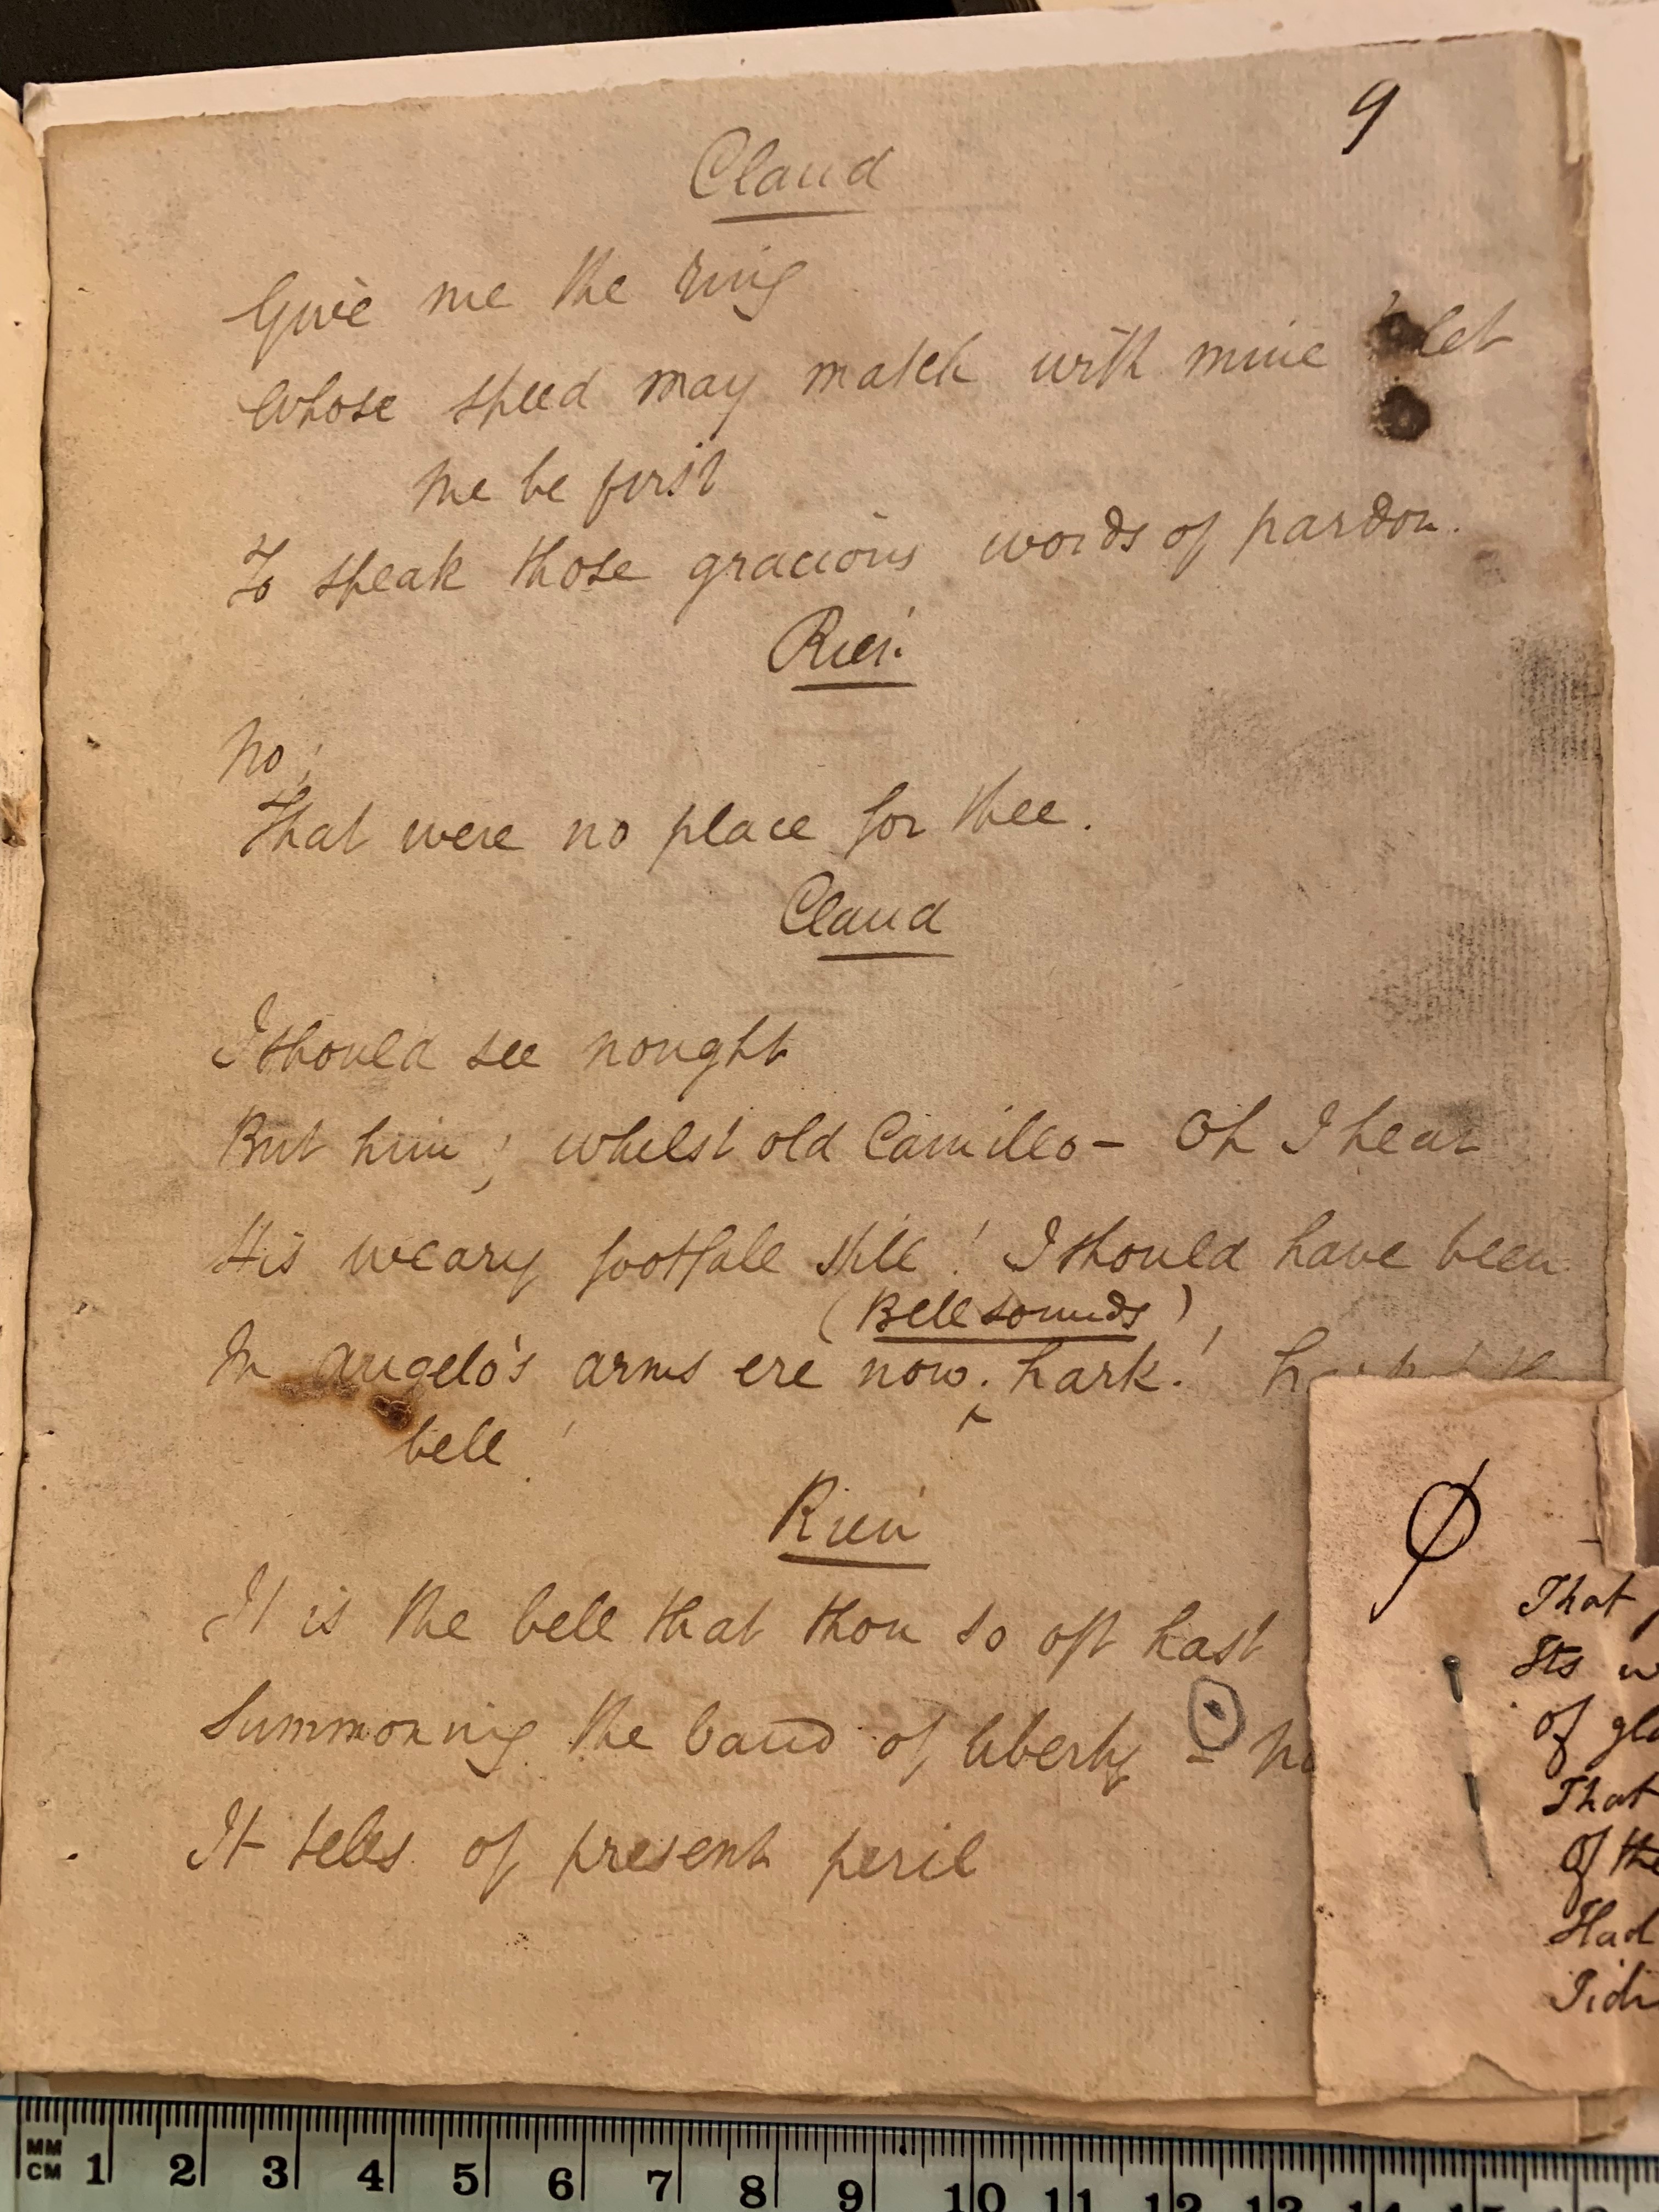 9
Claud
Give me the ring
Whose speed may match with mine let
me be first
To speak those gracious words of pardon.
Rien.
No;
That were no place for thee.
Claud
I should see nought
But him; whilst old Camillo - Oh I hear
His weary footfall still! I should have been
(Bell sounds)
In Angelo's arms ere now. hark!
bell!
Rien
It is the bell that thou so oft hast
Summoning the band of liberty -
It tells of present peril
That
Its
of
That
Of the
Had
MM
CM 1 2 3 4 5 6 7 8 9 10 11 12 13 14 15